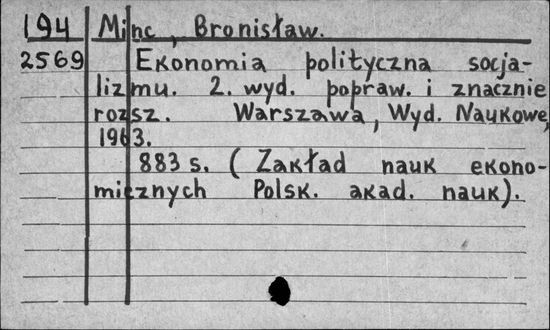 194 Minc, Bronisław.
2569 Ekonomia polityczna socja-
lizmu. 2. wyd. popraw. i znacznie
rozsz. Warszawa, Wyd. Naukowe,
1963.
883 s. (Zakład nauk ekono-
micznych Polsk. akad. nauk).